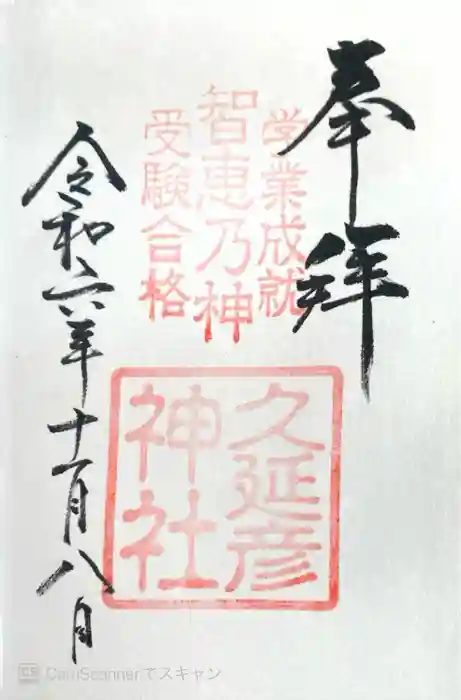 奉拝
学業成就
智恵乃神
受験合格
久延彦
神社
令和六年十一月八日
CS CamScannerでスキャン